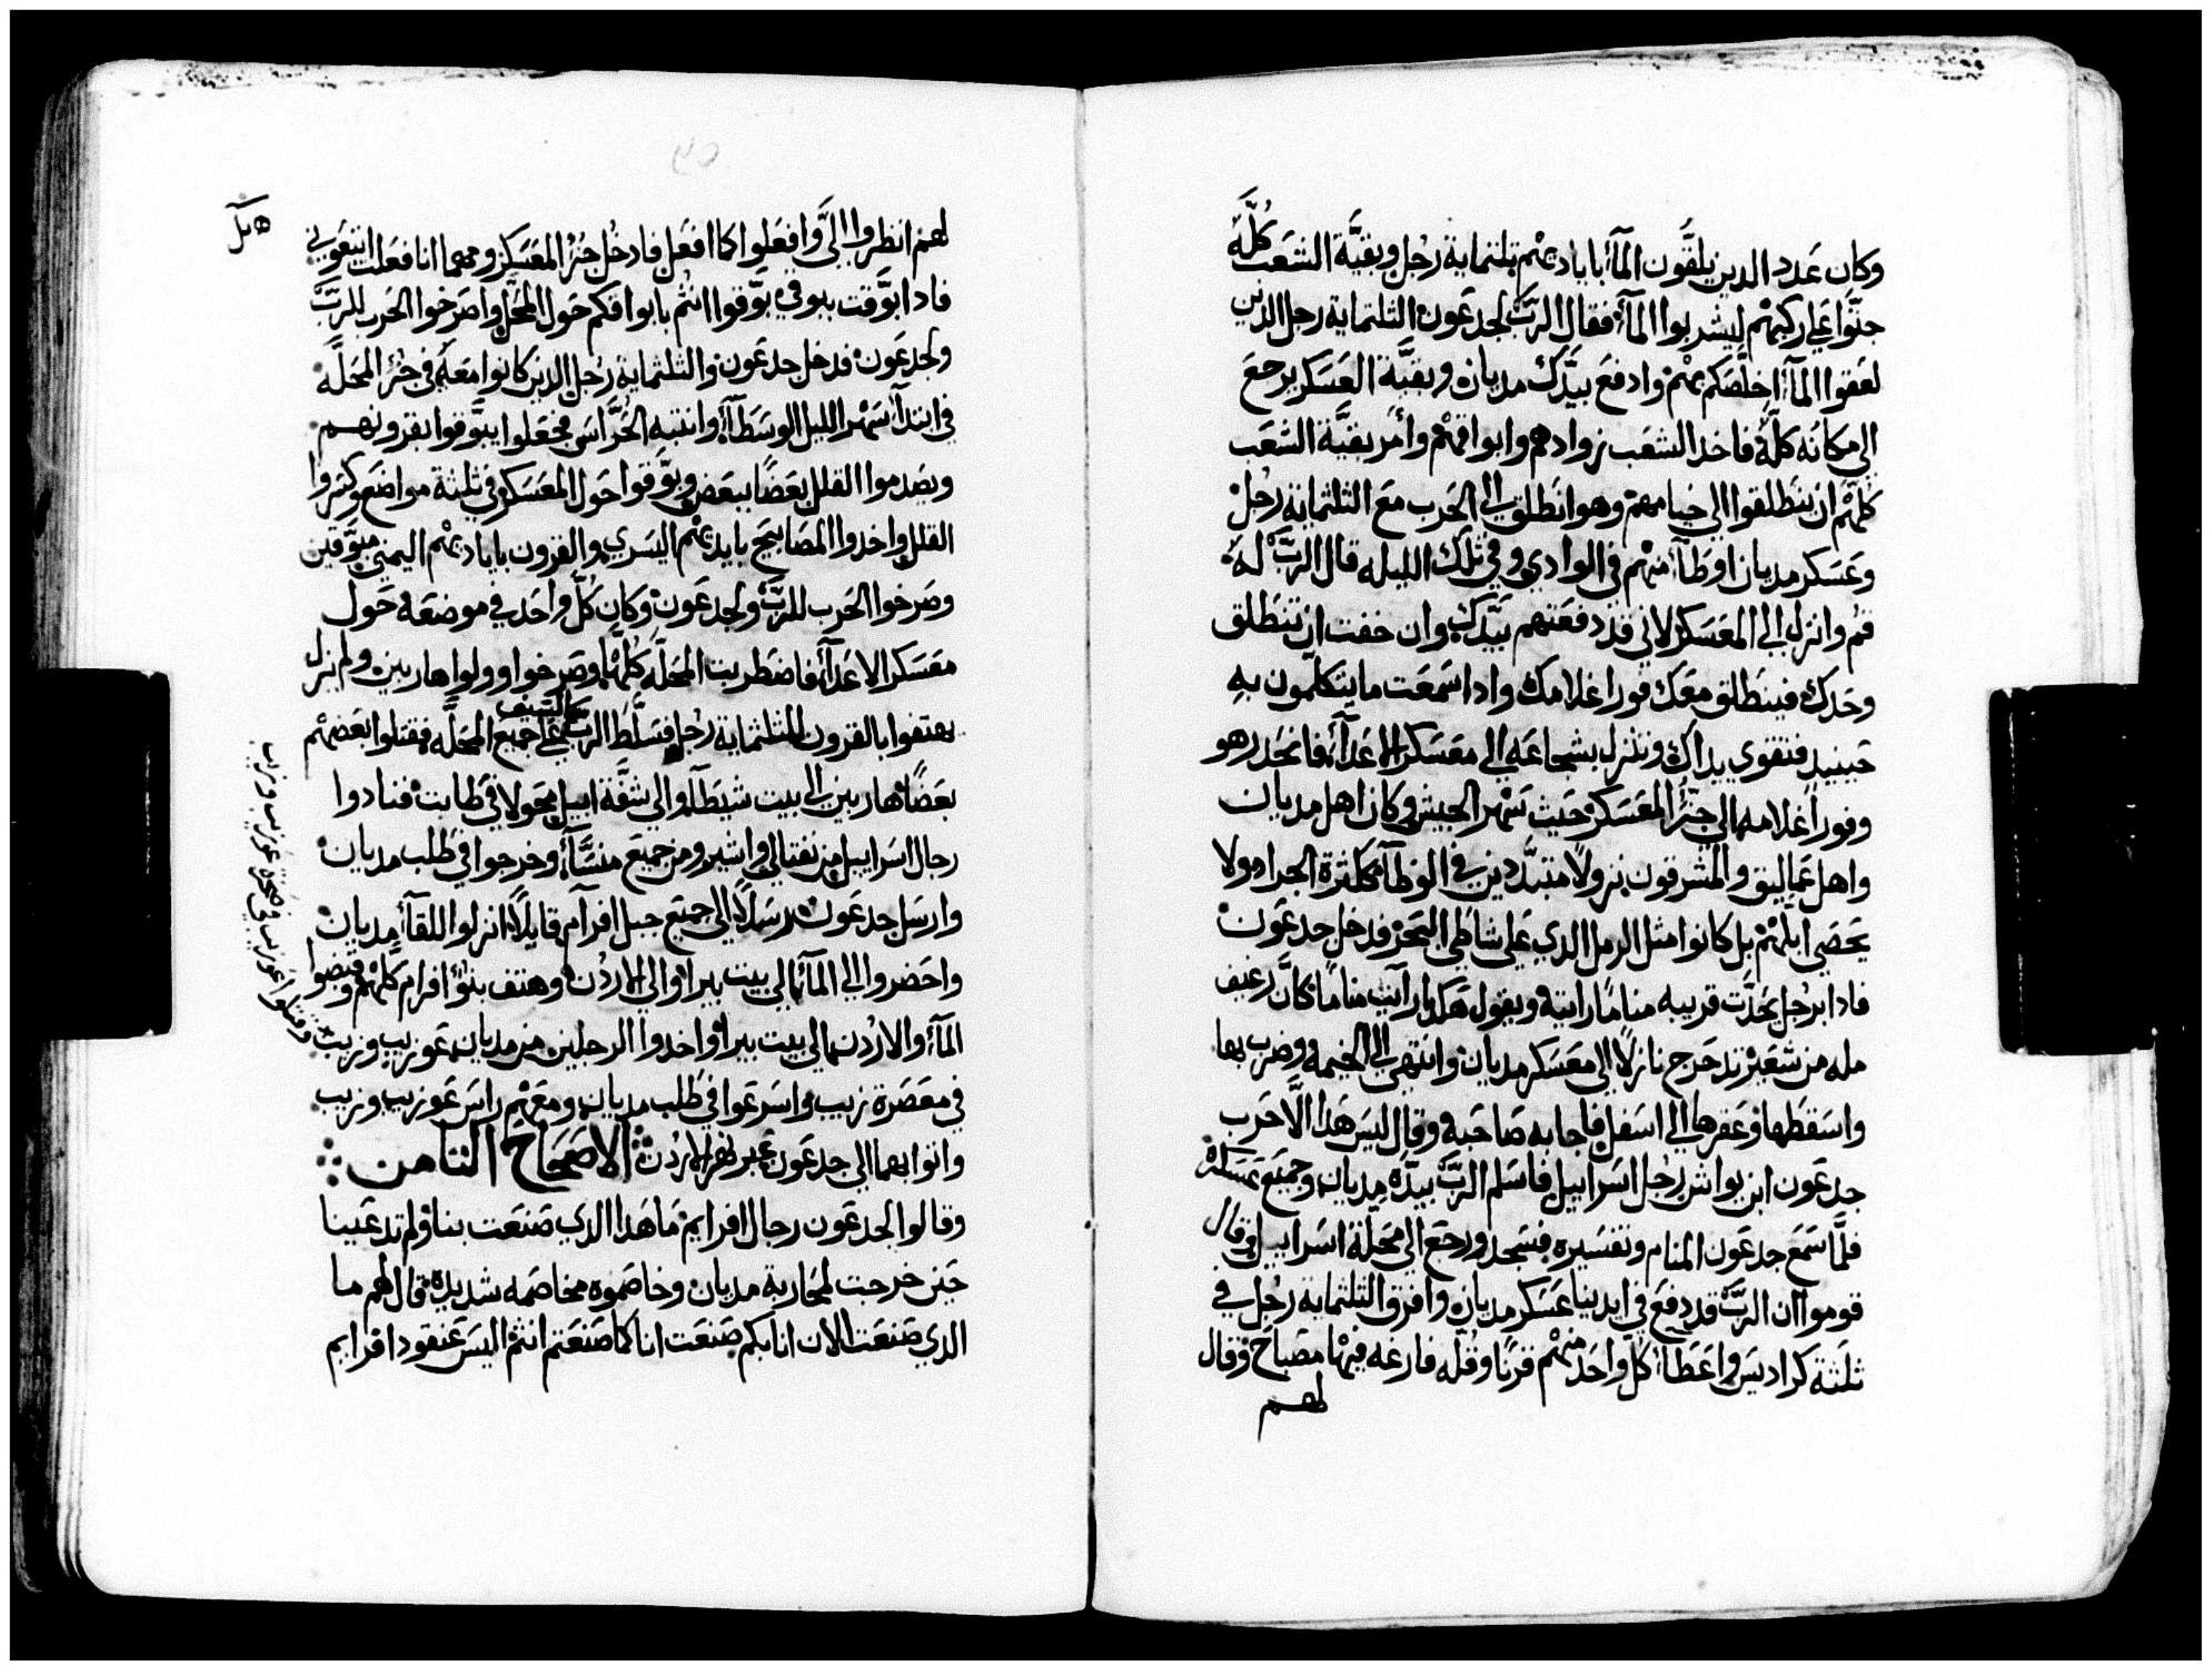 وكان عدد الدين يلقون المآ باياديهم تلتماية رجل وبقية الشعب كله
جتوا علي ركبهم ليشربوا المآ فقال الرب لجدعون التلتماية رجل الدين
لعقوا المآ اخلصكم بهم وادفع بيدك مديان وبقية العسكر يرجع
الي مكانه كله فاخد الشعب زوادهم وابواقهم وأمر بقية الشعب
كلهم ان ينطلقوا الي خيامهم وهو انطلق الي الحرب مع التلتماية رجل
وعسكر مديان اوطآ منهم في الوادي وفي تلك الليله قال الرب له
قم وانزل الي المعسكر لاني قد دفعتهم بيدك وان خفت ان تنطلق
وحدك فينطلق معك فورا غلامك وادا سمعت ما يتكلمون به
حينيد فتقوي يداك وتنزل بشجاعه الي معسكر الاعدآ فانحدر هو
وفورا غلامه الي جزء المعسكر حيث سهر الجيش وكان اهل مديان
واهل عماليق والمشرقون نزولا متبددين في الوطآ ككترة الجراد ولا
يحصي ابلهم بل كانوا متل الرمل الدي علي شاطي البحر فدخل جدعون
فادا برجل يحدت قريبه مناما رايته ويقول هكدا رآيت مناما كان رغيف
مله من شعير تدحرج نازلا الي معسكر مديان وانتهي الي الخيمه وضرب بها
واسقطها وعقرها الي اسفل فاجابه صاحبه وقال ليس هدا الا حرب
جدعون ابن يواش رجل اسراييل فاسلم الرب بيده مديان وجميع عسكره
فلما سمع جدعون المنام وتفسيره فسجد ورجع الي محلة اسراييل وقال
قوموا ان الرب قد دفع في ايدينا عسكر مديان وافرق التلتماية رجل في
تلتة كراديس واعطآ كل واحد منهم قرنا وقله فارغه فيها مصباح وقال
لهم
لهم انظروا الي وافعلوا كما افعل فادخل جزء المعسكر ومهما انا فعلت اتبعوني
فادا بوقت ببوقي بوقوا انتم بابواقكم حول المحل واصرخوا الحرب للرب
ولجدعون فدخل جدعون والتلتماية رجل الدين كانوا معه في جزء المحله
في ابتدآ سهر الليل الوسطآ وانتبه الحراس فجعلوا يبوقوا بقرونهم
ويصدموا القلل بعضا ببعض وبوقوا حول المعسكر في تلتة مواضع وكسروا
القلل واخدوا المصابيح بايديهم اليسري والقرون باياديهم اليمني مبوقين
وصرخوا الحرب للرب ولجدعون وكان كل واحد في موضعه حول
معسكر الاعدآ فاضطربت المحله كلها وصرخوا وولوا هاربين ولم يزل
يهتفوا بالقرون التلتماية رجل فسلط الرب السيف علي جميع المحله فقتلوا بعضهم
بعضا هاربين الي بيت شيطآ والي شفة ابيل محولا في طابت فنادوا
رجال اسراييل من نفتالي واشير ومن جميع منسآ وخرجوا في طلب مديان
وارسل جدعون رسلا الي جميع جبل افرآم قايلا انزلوا اللقآ مديان
واحضروا الي المآ الي بيت بيرا والي الاردن وهتف بنو افرام كلهم وقبضوا
المآ والاردن الي بيت بيرا واخدوا الرجلين من مديان عوزيب وزيب
وقتلوا عوزيب في صخرة عوزيب وزيب
في معصرة زيب واسرعوا في طلب مديان ومعهم راس عوزيب وزيب
واتوا بهما الي جدعون عبر نهر الاردن الاصحاح التامن
وقالوا لجدعون رجال افرايم ما هدا الدي صنعت بنا ولم تدعينا
حين خرجت لمحاربة مديان وخاصموه مخاصمه شديده قال لهم ما
الدي صنعت الان انا بكم صنعت انا كما صنعتم انتم اليس عنقود افرايم